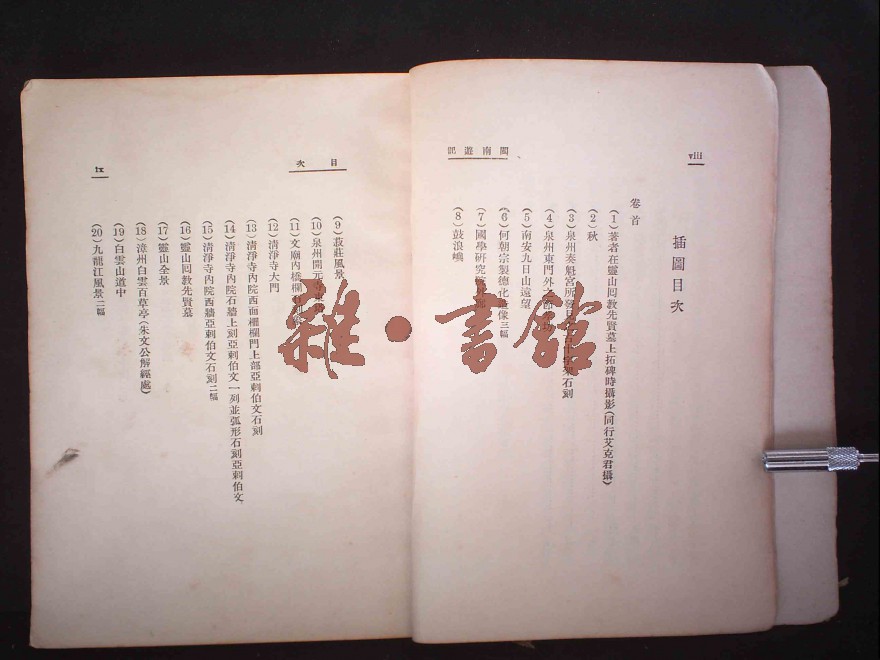 viii
閩南遊記
插圖目次
卷首
(1)著者在靈山囘敎先賢墓上拓碑時攝影(同行艾克君攝)
(2)秋
(3)泉州奏魁宮所發見 石刻
(4)泉州東門外
(5)南安九日山遠望
(6)何朝宗製德化 像三幅
(7)國學硏究
(8)鼓浪嶼
目次
ix
(9)菽莊風景
(10)泉州開元寺
(11)文廟內橋欄
(12)清淨寺大門
(13)清淨寺內院西面櫺欄門上部亞剌伯文石刻
(14)清淨寺內院石牆上刻亞剌伯文一列並弧形石刻亞剌伯文
(15)清淨寺內院西牆亞剌伯文石刻二幅
(16)靈山囘敎先賢墓
(17)靈山全景
(18)漳州白雲百草亭(朱文公解經處)
(19)白雲山道中
(20)九龍江風景二幅
雜·書館